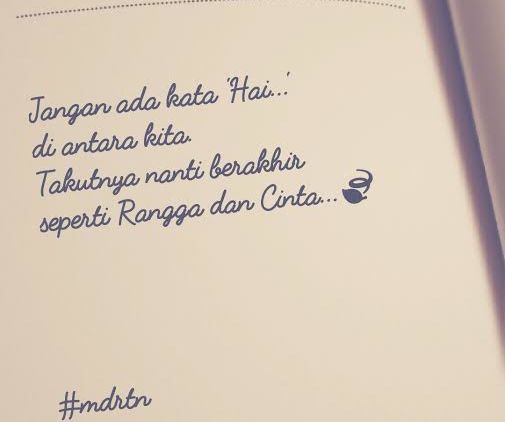 Jangan ada kata 'Hai...'
di antara kita.
Takutnya nanti berakhir
seperti Rangga dan Cinta...
#mdrtn